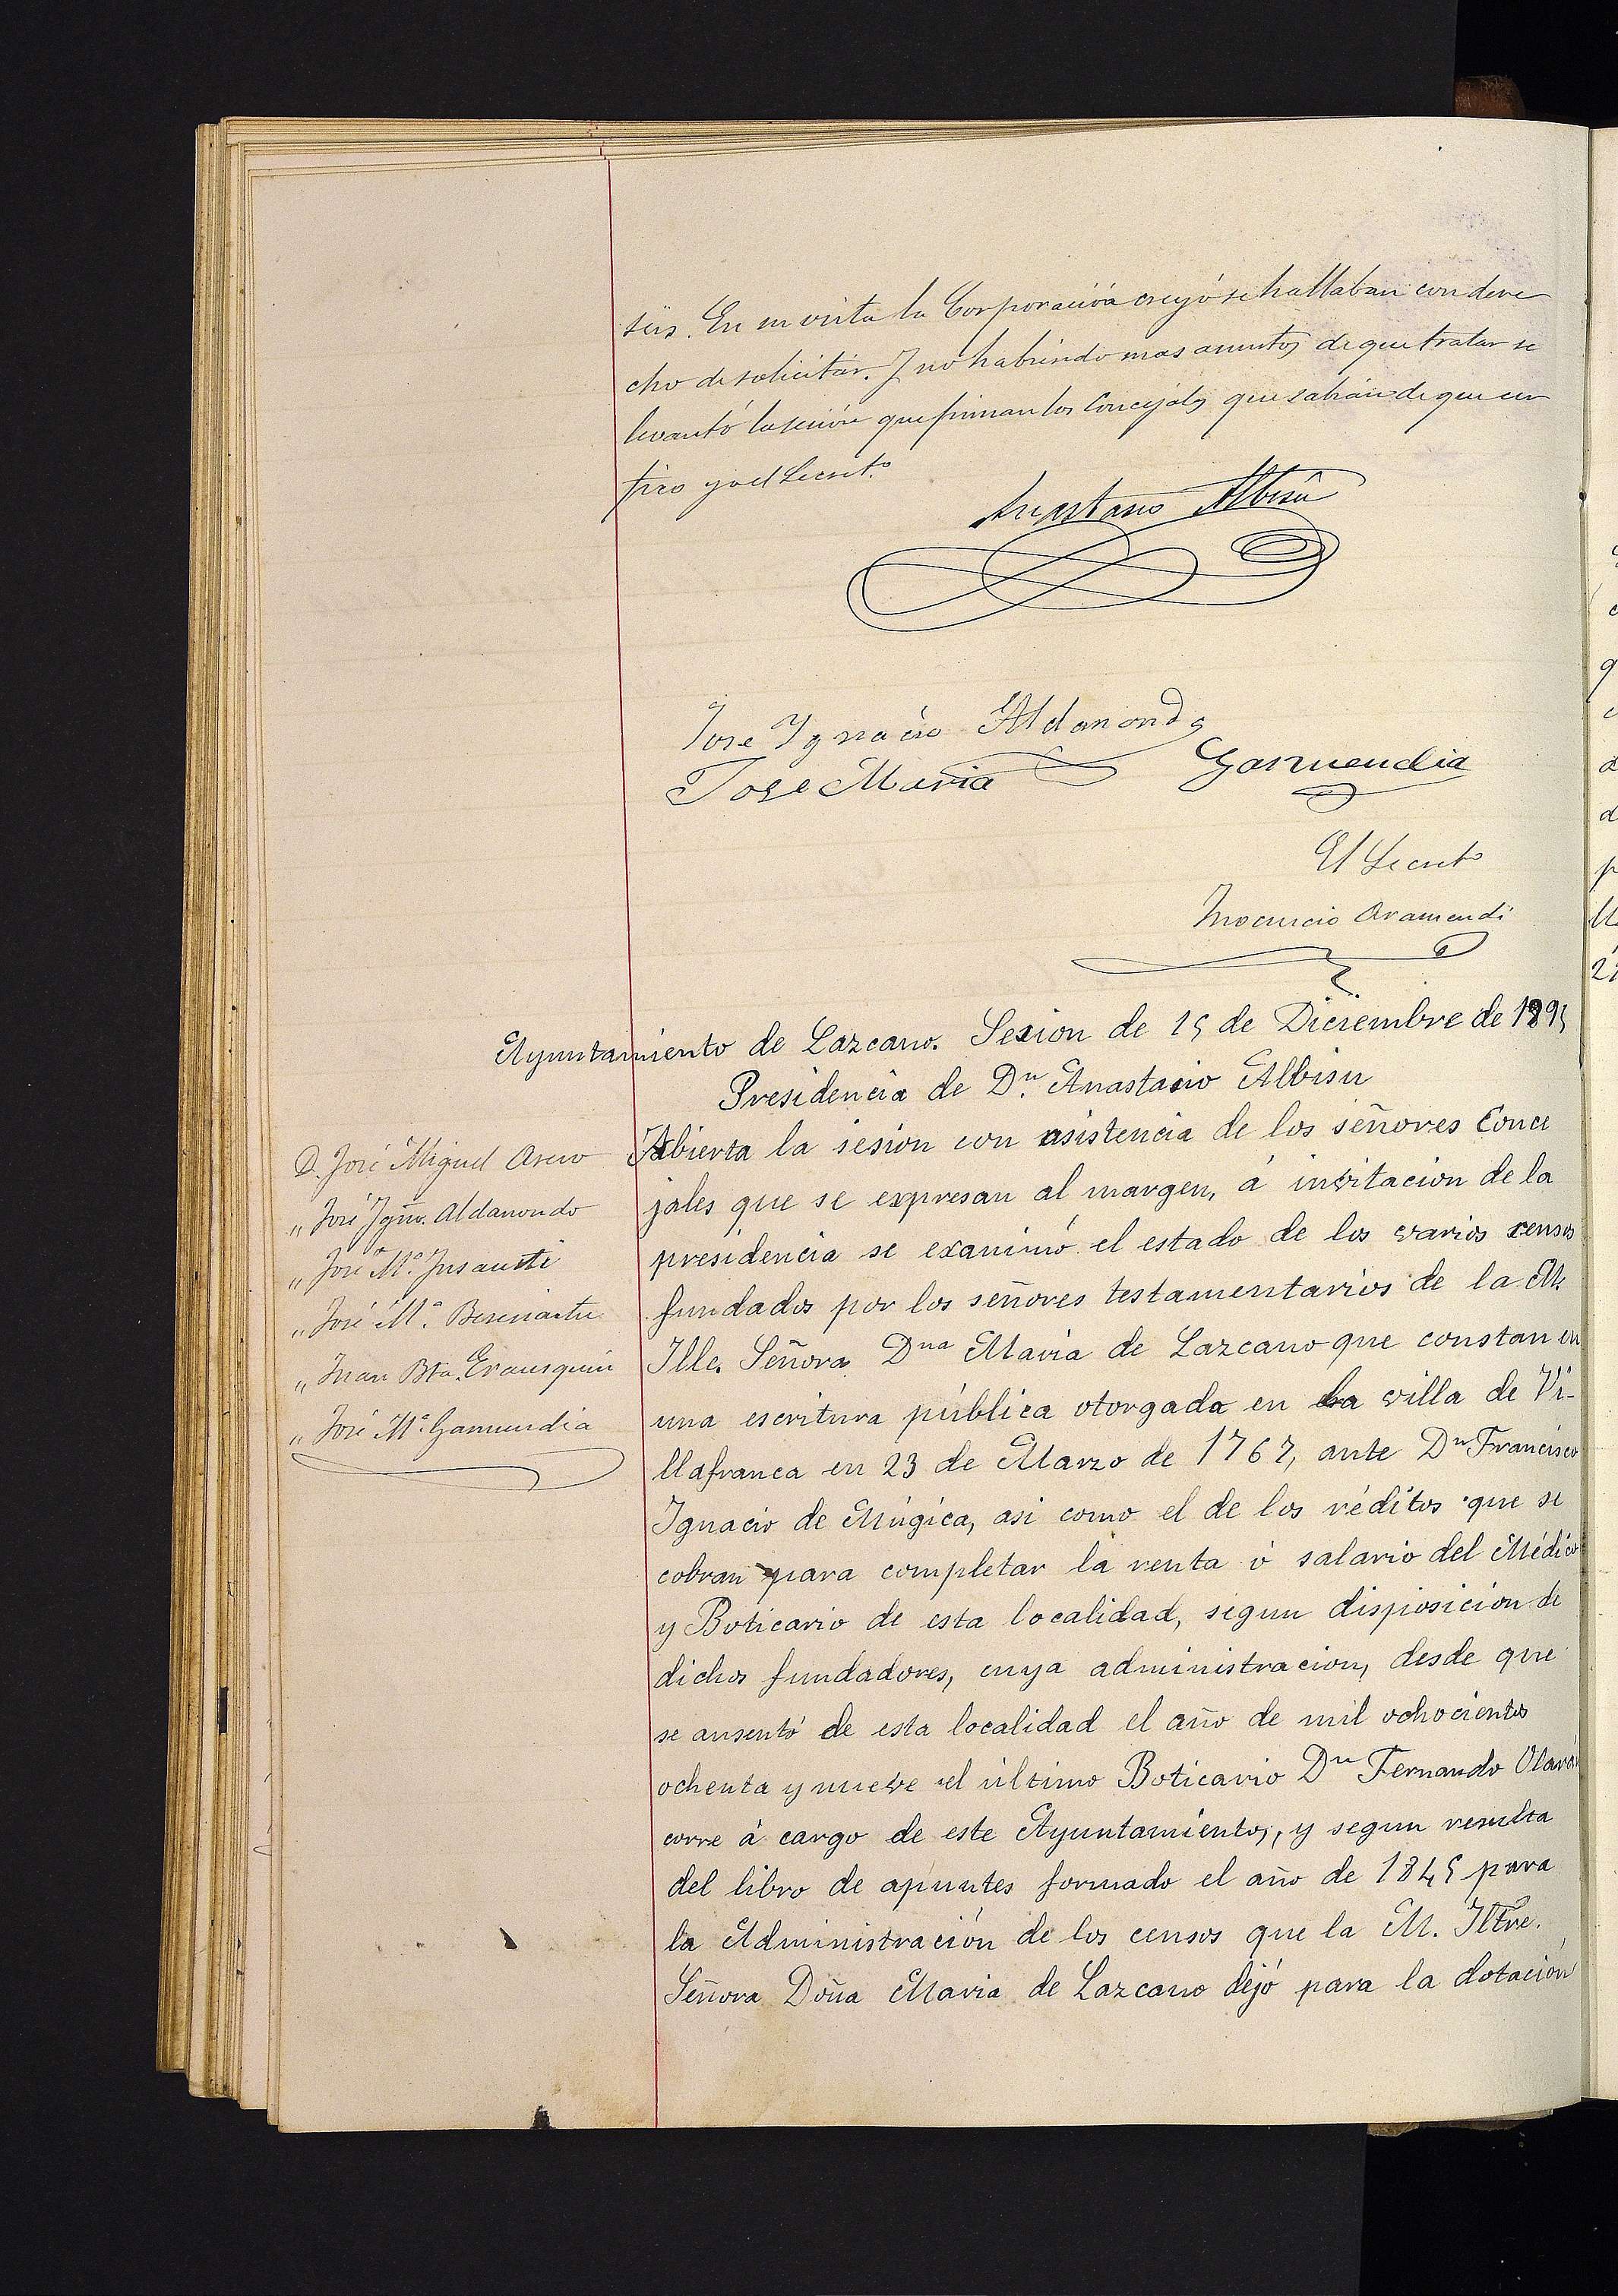 seis. En su vista la Corporación creyó se hallaban con dere
cho de solicitar. Y no habiendo mas asuntos de que tratar se
levantó la sesión que firman los Concejales que sabían de que cer
tifico yo el Secret.º
Anastasio Albisu
Jose Ygnacio Aldanondo
Jose Maria Garmendia
El Secret.º
Inocencio Aramendi
Ayuntamiento de Lazcano. Sesion de 15 de Diciembre de 1895
Presidencia de Dn. Anastasio Albisu
D. José Miguel
„ José Ygn.º Aldanondo
„ José M.ª Insausti
„ José M.ª
„ Juan Bta. Erausquin
„ José M.ª Garmendia
Abierta la sesion con asistencia de los señores Conce
jales que se expresan al margen, á invitacion de la
presidencia se examinó el estado de los varios censos
fundados por los señores testamentarios de la M.
Ille. Señora Dna Maria de Lazcano que constan en
una escritura pública otorgada en la villa de Vi-
llafranca en 23 de Marzo de 1767, ante Dn Francisco
Ygnacio de Múgica, asi como el de los réditos que se
cobran para completar la renta ó salario del Médico
y Boticario de esta localidad, segun disposicion de
dichos fundadores, cuya administracion, desde que
se ausentó de esta localidad el año de mil ochocientos
ochenta y nueve el último Boticario Dn Fernando
corre á cargo de este Ayuntamiento, y segun resulta
del libro de apuntes formado el año de 1845 para
la Administración de los censos que la M. Iltre.
Señora Doña Maria de Lazcano dejó para la dotación